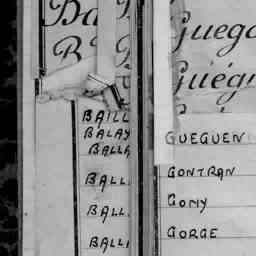 Ba
B
BAILL
BALAY
BALLA
BALL
BALL
BALLI
Guego
Guégu
GUEGUEN
GONTRAN
GONY
GORGE